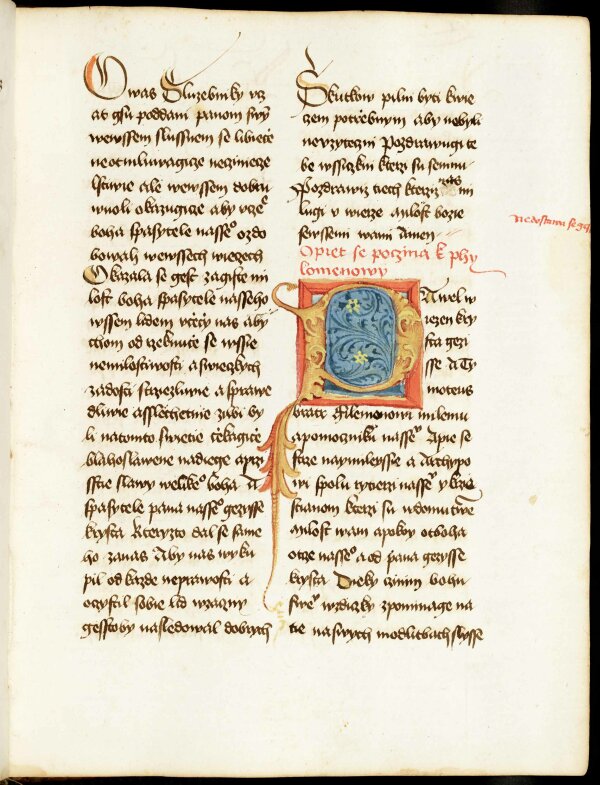 O was Sluzebniky wz
at gsu poddani panom swy
wewssem slussnem se libiece
neotmluwagicze neczinicze
lstiwie ale wewssem dobru
wuoli okazugicze aby vcze
boha spasytele nasseo ozdo
bowali wewssech wieczech
Okazala se gest zagiste mi
lost boha spasytele nasseho
wssem lidem vczyecz nas aby
chom od rzeknucze se wssie
nemilostiwosti a swieczkych
zadosti strziezliwie a sprawe
dliwie a sslechetnie ziwi by
li natomto swietie czekagicze
blahoslawene nadiege a przi
sstie slawy welikeo boha A
spasytele pana nasseo gezysse
krysta Kteryzto dal se same
ho zanas Aby nas wyku
pil od kazde neprawosti a
oczystil sobie lid wzaczny
gesstoby nasledowal dobrych
Skutkow pilni byti kwie
czem potrzebnym aby nebyli
neuzyteczni Pozdrawugi te
be wssiczkni kterzi su semnu
Pozdrawiz tiech kterziz nas mi
lugi v wierze Milost bozie
sewssemi wami Amen
Opiet se poczina k phy
lomenowy
Nedostawa se
Pawel w
iezen kry
sta gezi
sse A Ty
moteus
bratr Filemonowi milemu
apomoczniku nasseo Apie se
strze naymilegssie a Archypo
wi spolu rytierzi nasseo y krze
stianom kterzi su wdomu twe
Milost wam apokoy otboha
otcze nasseo a od pana gezysse
krysta Dieky czinim bohu
sweo wzdiczky zpominage na
tie naswych modlitbach slysse